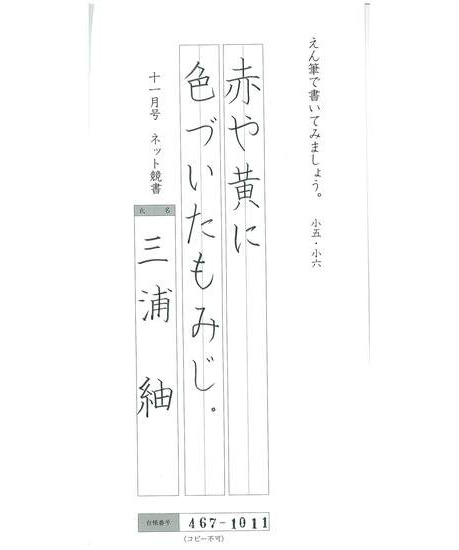 えん筆で書いてみましょう。 小五・小六
赤や黄に
色づいたもみじ。
十一月号 ネット競書
氏名
三浦 紬
台帳番号 467-1011
(コピー不可)